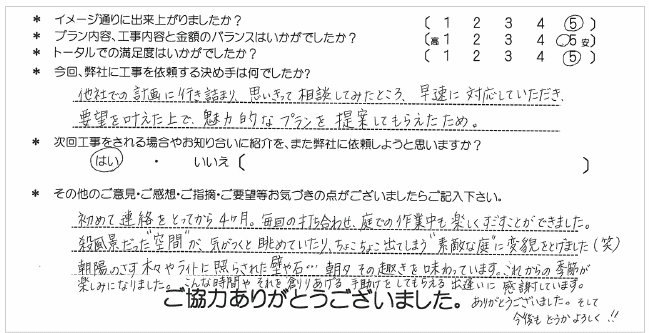 * イメージ通りに出来上がりましたか? [ 1 2 3 4 5 ]
* プラン内容、工事内容と金額のバランスはいかがでしたか? [高 1 2 3 4 5 安]
* トータルでの満足度はいかがでしたか? [ 1 2 3 4 5 ]
* 今回、弊社に工事を依頼する決め手は何でしたか?
他社での計画に行き詰まり、思いきって相談してみたところ、早速に対応していただき、
要望を叶えた上で、魅力的なプランを提案してもらえたため。
* 次回工事をされる場合やお知り合いに紹介を、また弊社に依頼しようと思いますか?
はい ・ いいえ [ ]
* その他のご意見・ご感想・ご指摘・ご要望等お気づきの点がございましたらご記入下さい。
初めて連絡をとってから4ヶ月。毎回の打ち合わせ、庭での作業中も楽しくすごすことができました。
殺風景だった"空間"が、気がつくと眺めていたり、ちょこちょこ出てしまう"素敵な庭"に変貌をとげました(笑)
朝陽のさす木々やライトに照らされた壁や石…朝夕その趣きを味わっています。これからの季節が
楽しみになりました。こんな時間やそれを創りあげる手助けをしてもらえる出逢いに感謝しています。
ご協力ありがとうございました。
ありがとうございました。そして
今後もどうかよろしく!!